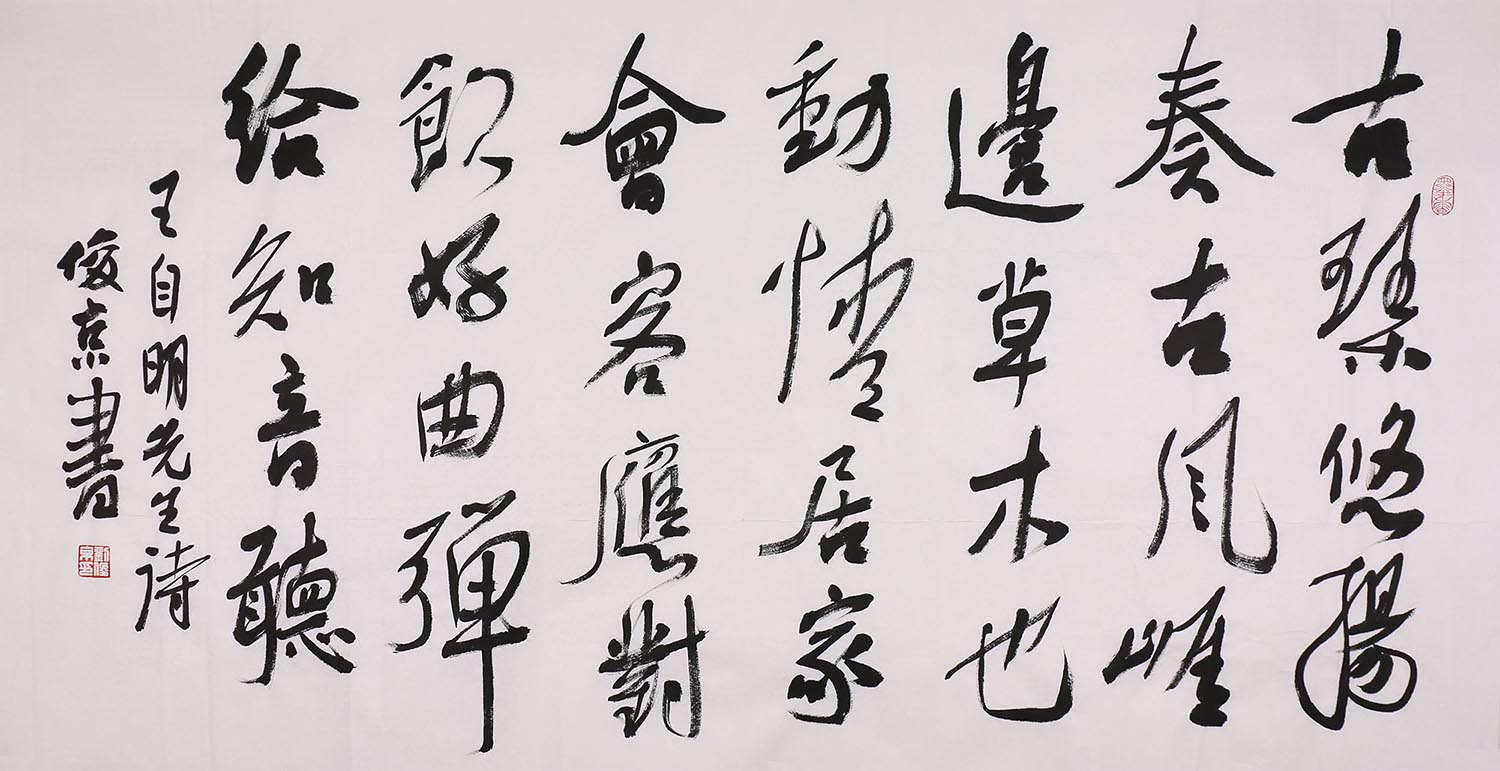 古琴悠揚
奏古風崖
邊草木也
動情居家
會客應對
飲好曲彈
給知音聽
王自明先生詩
俊京書
劉俊京印